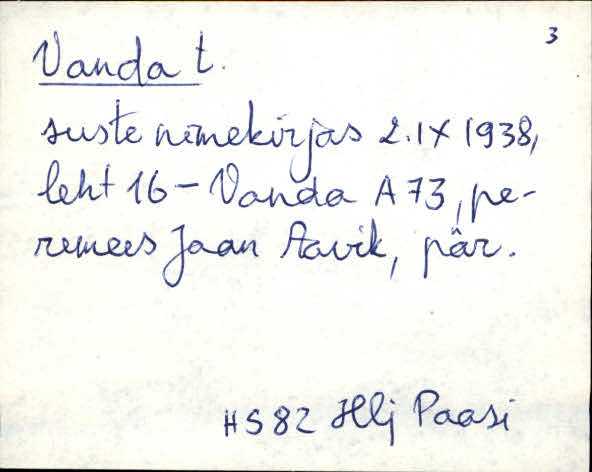 3
Vanda t.
suste nimekirjas 2.IX 1938,
leht 16 – Vanda A 73, pe-
remees Jaan Aavik, pär.
HS 82 Hlj Paasi